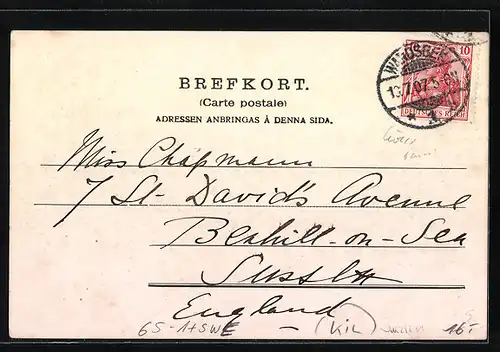 WANDSBEK
13.7.07.5-6N
10
DEUTSCHES REICH
BREFKORT.
(Carte postale)
ADRESSEN ANBRINGAS Å DENNA SIDA.
Miss Chapmann
7 St. David's Avenue
Bexhill-on-Sea
Sussex
England
6S-1+SWE
(KiL)
16.-